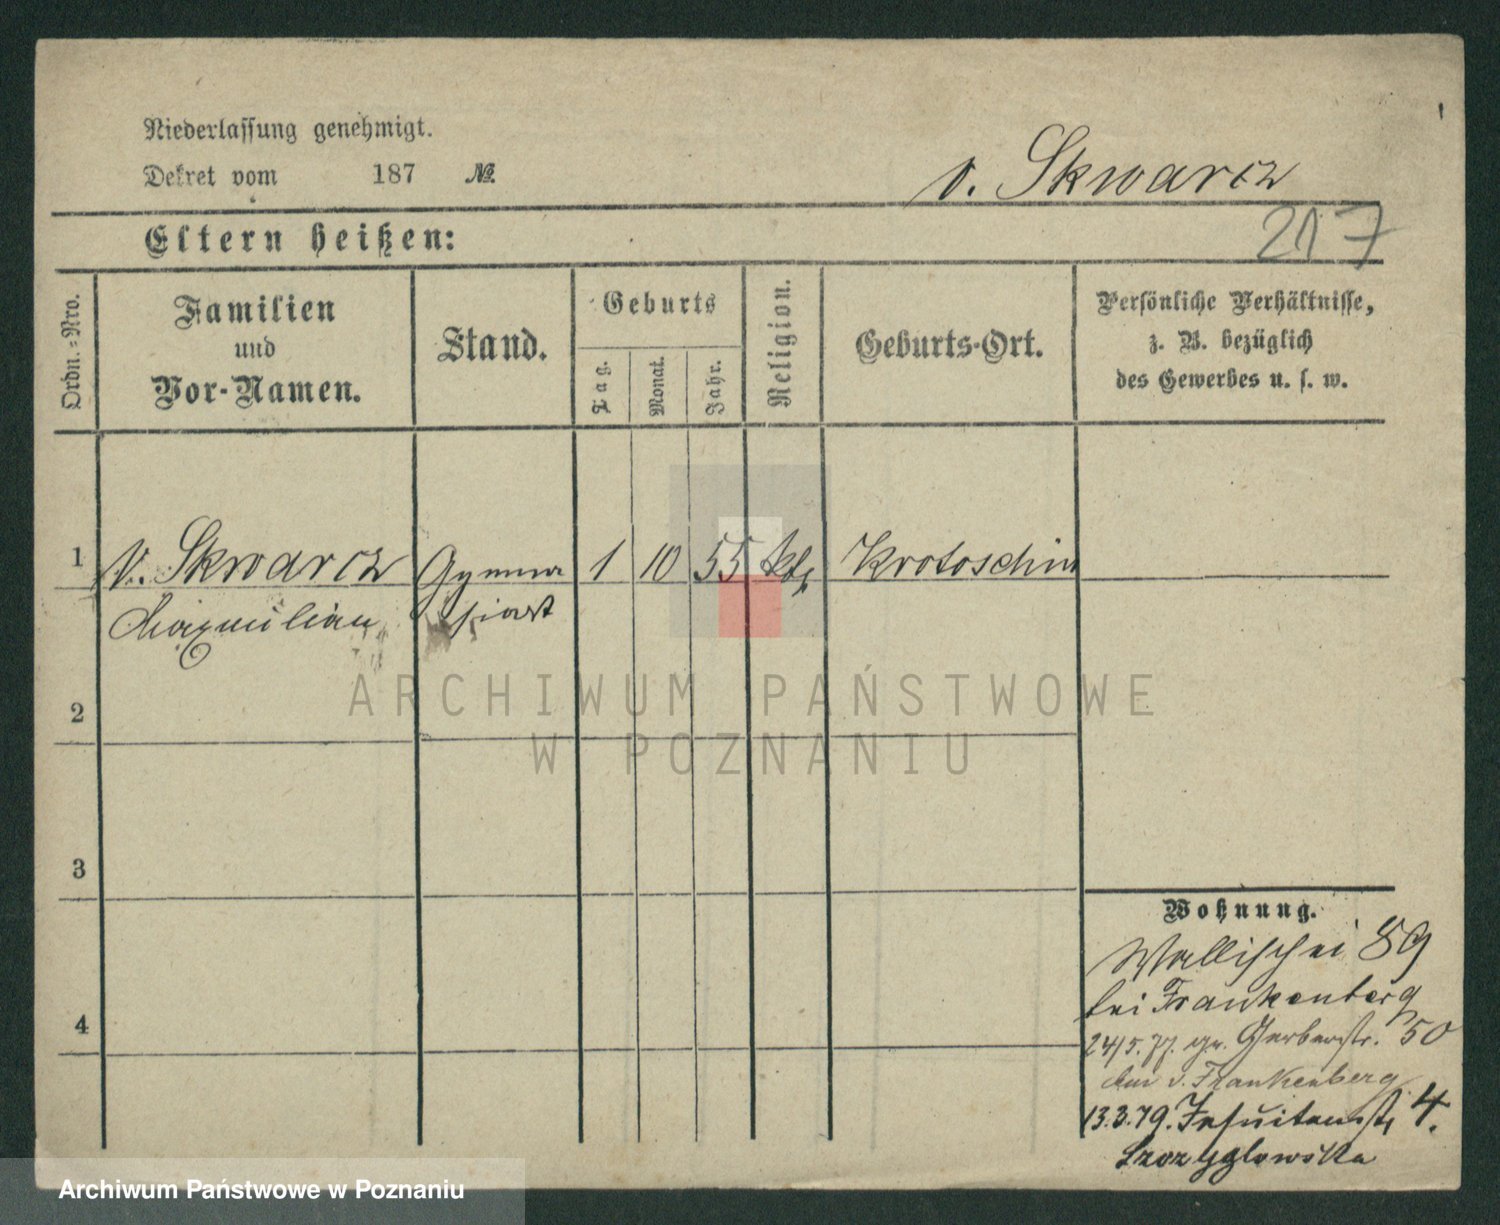 Niederlassung genehmigt.
Dekret vom 187 №
v. Skwarcz
217
Eltern heißen:
Ordn.-Nro.
Familien
und
Vor-Namen.
Stand.
Geburts
Tag.
Monat.
Jahr.
Religion.
Geburts-Ort.
Persönliche Verhältnisse,
z. B. bezüglich
des Gewerbes u. s. w.
1 v. Skwarcz Gymna 1 10 55 kth Krotoschin
Maximilian siast
2
3
4
Wohnung.
Wallischei 89
bei Frankenberg
24/5. 77. gr. Gerberstr. 50
bei v. Frankenberg
13.3.79. Jesuitenstr 4.
Szczyglowska
ARCHIWUM PAŃSTWOWE
W POZNANIU
Archiwum Państwowe w Poznaniu